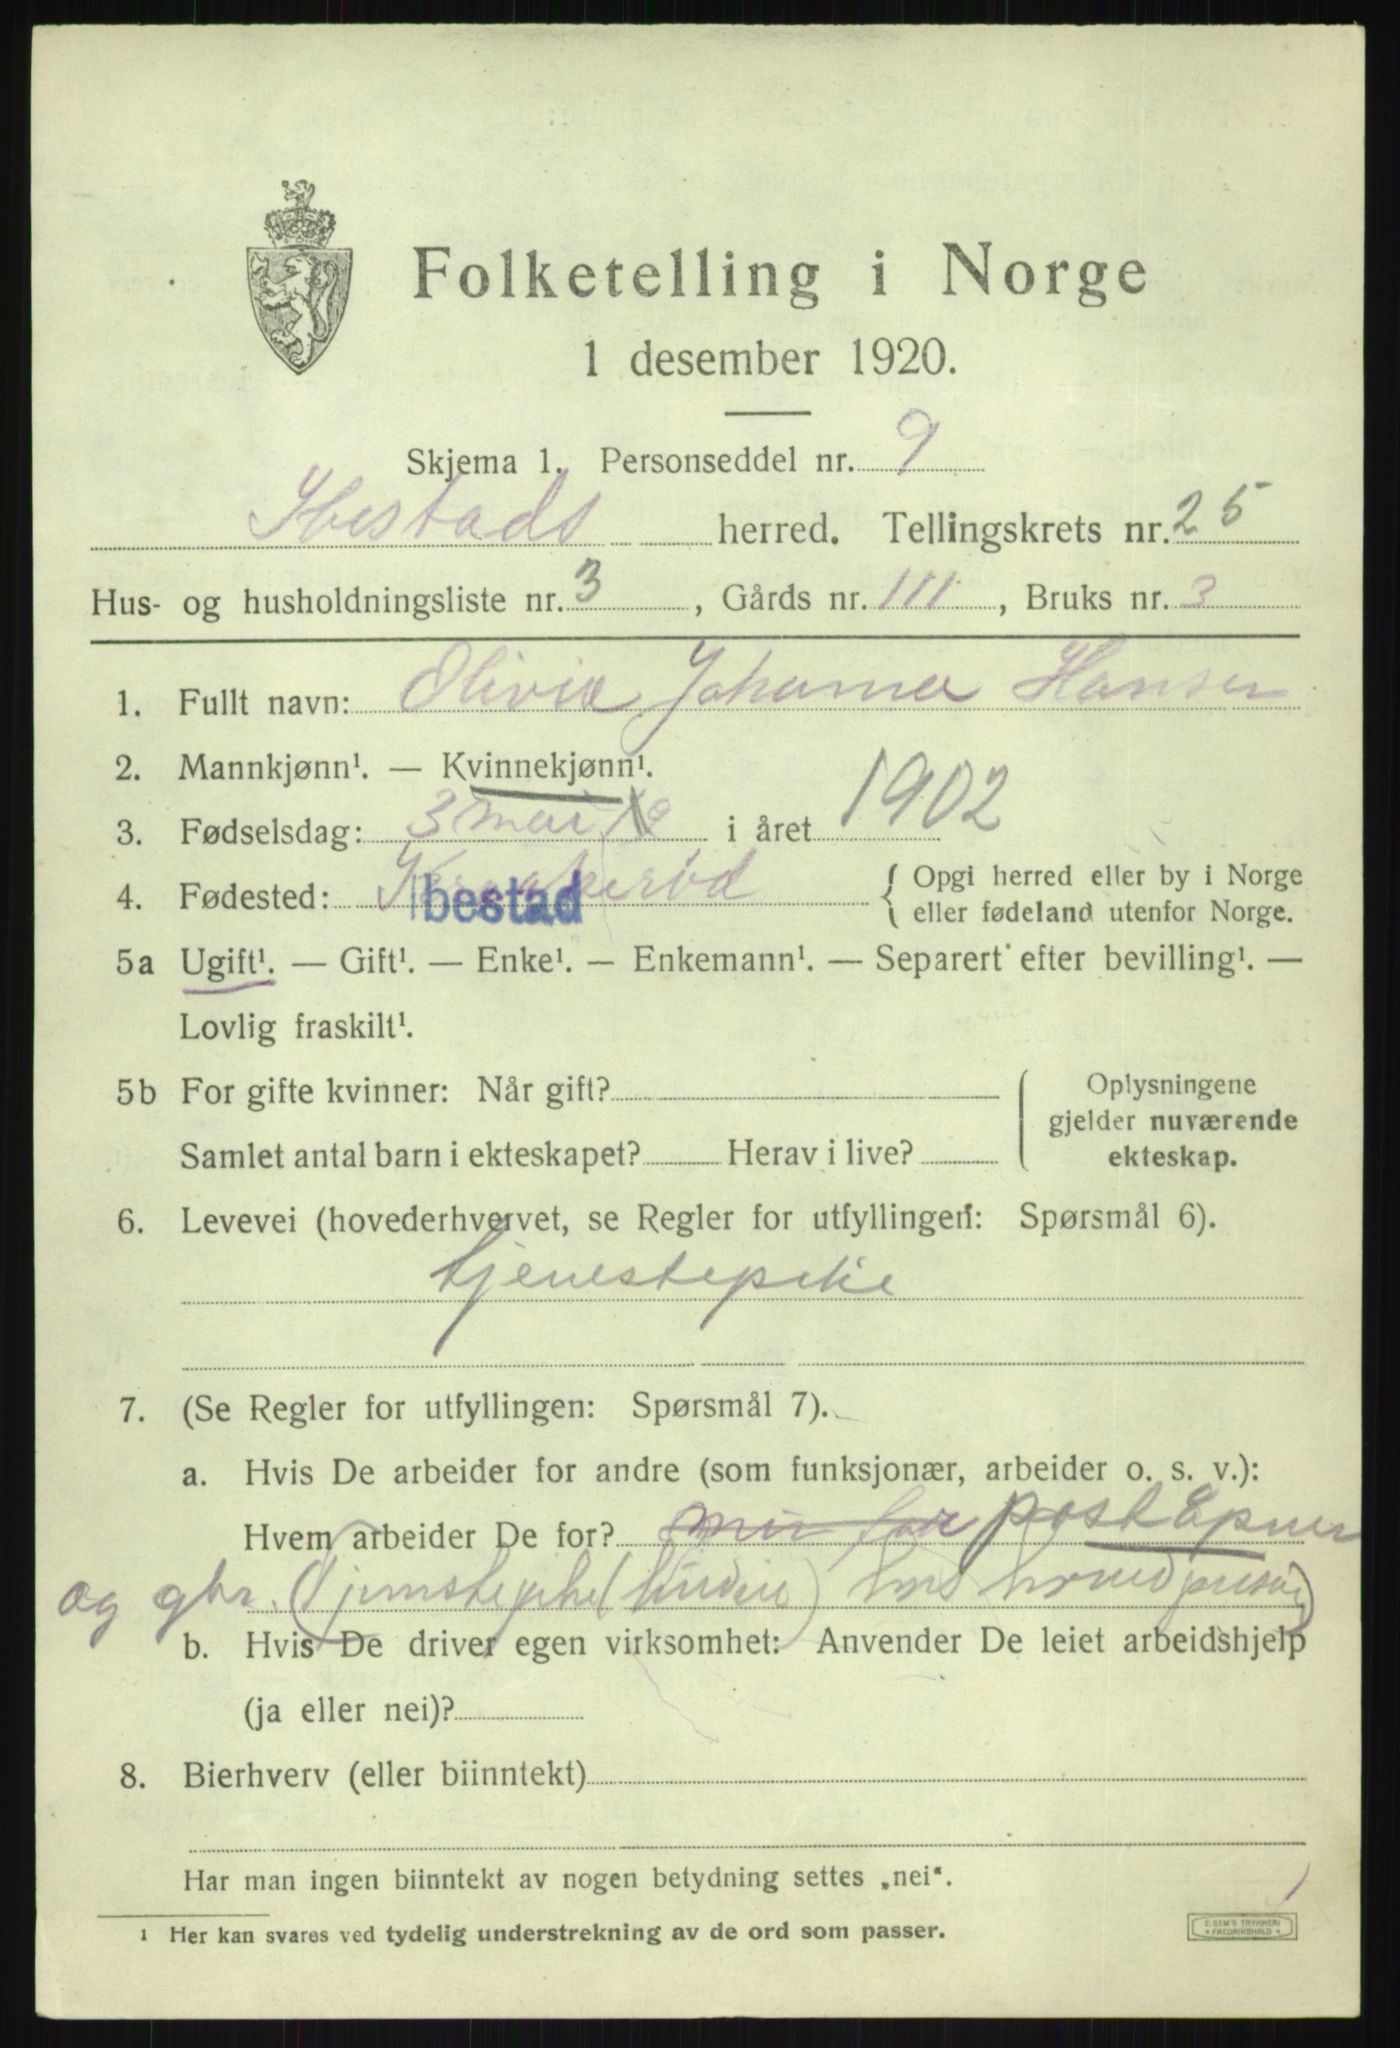 Folketelling i Norge
1 desember 1920.
Skjema 1. Personseddel nr. 9
Ibestads herred. Tellingskrets nr. 25
Hus- og husholdningsliste nr. 3, Gårds nr. 111, Bruks nr. 3
1. Fullt navn: Olivia Johanna Hansen
2. Mannkjønn¹. — Kvinnekjønn¹.
3. Fødselsdag: 3 mai i året 1902
4. Fødested: Ibestad { Opgi herred eller by i Norge
eller fødeland utenfor Norge.
5a Ugift¹. — Gift¹. — Enke¹. — Enkemann¹. — Separert efter bevilling¹. —
Lovlig fraskilt¹.
5b For gifte kvinner: Når gift? Oplysningene
gjelder nuværende
Samlet antal barn i ekteskapet? Herav i live? ekteskap.
6. Levevei (hovederhvervet, se Regler for utfyllingen: Spørsmål 6).
tjenestepike
7. (Se Regler for utfyllingen: Spørsmål 7).
a. Hvis De arbeider for andre (som funksjonær, arbeider o. s. v.):
Hvem arbeider De for? poståpner
og gbr. (tjenestepike hos
b. Hvis De driver egen virksomhet: Anvender De leiet arbeidshjelp
(ja eller nei)?
8. Bierhverv (eller biinntekt)
Har man ingen biinntekt av nogen betydning settes „nei“.
¹ Her kan svares ved tydelig understrekning av de ord som passer.
E. SEM'S TRYKKERI
FREDRIKSHALD